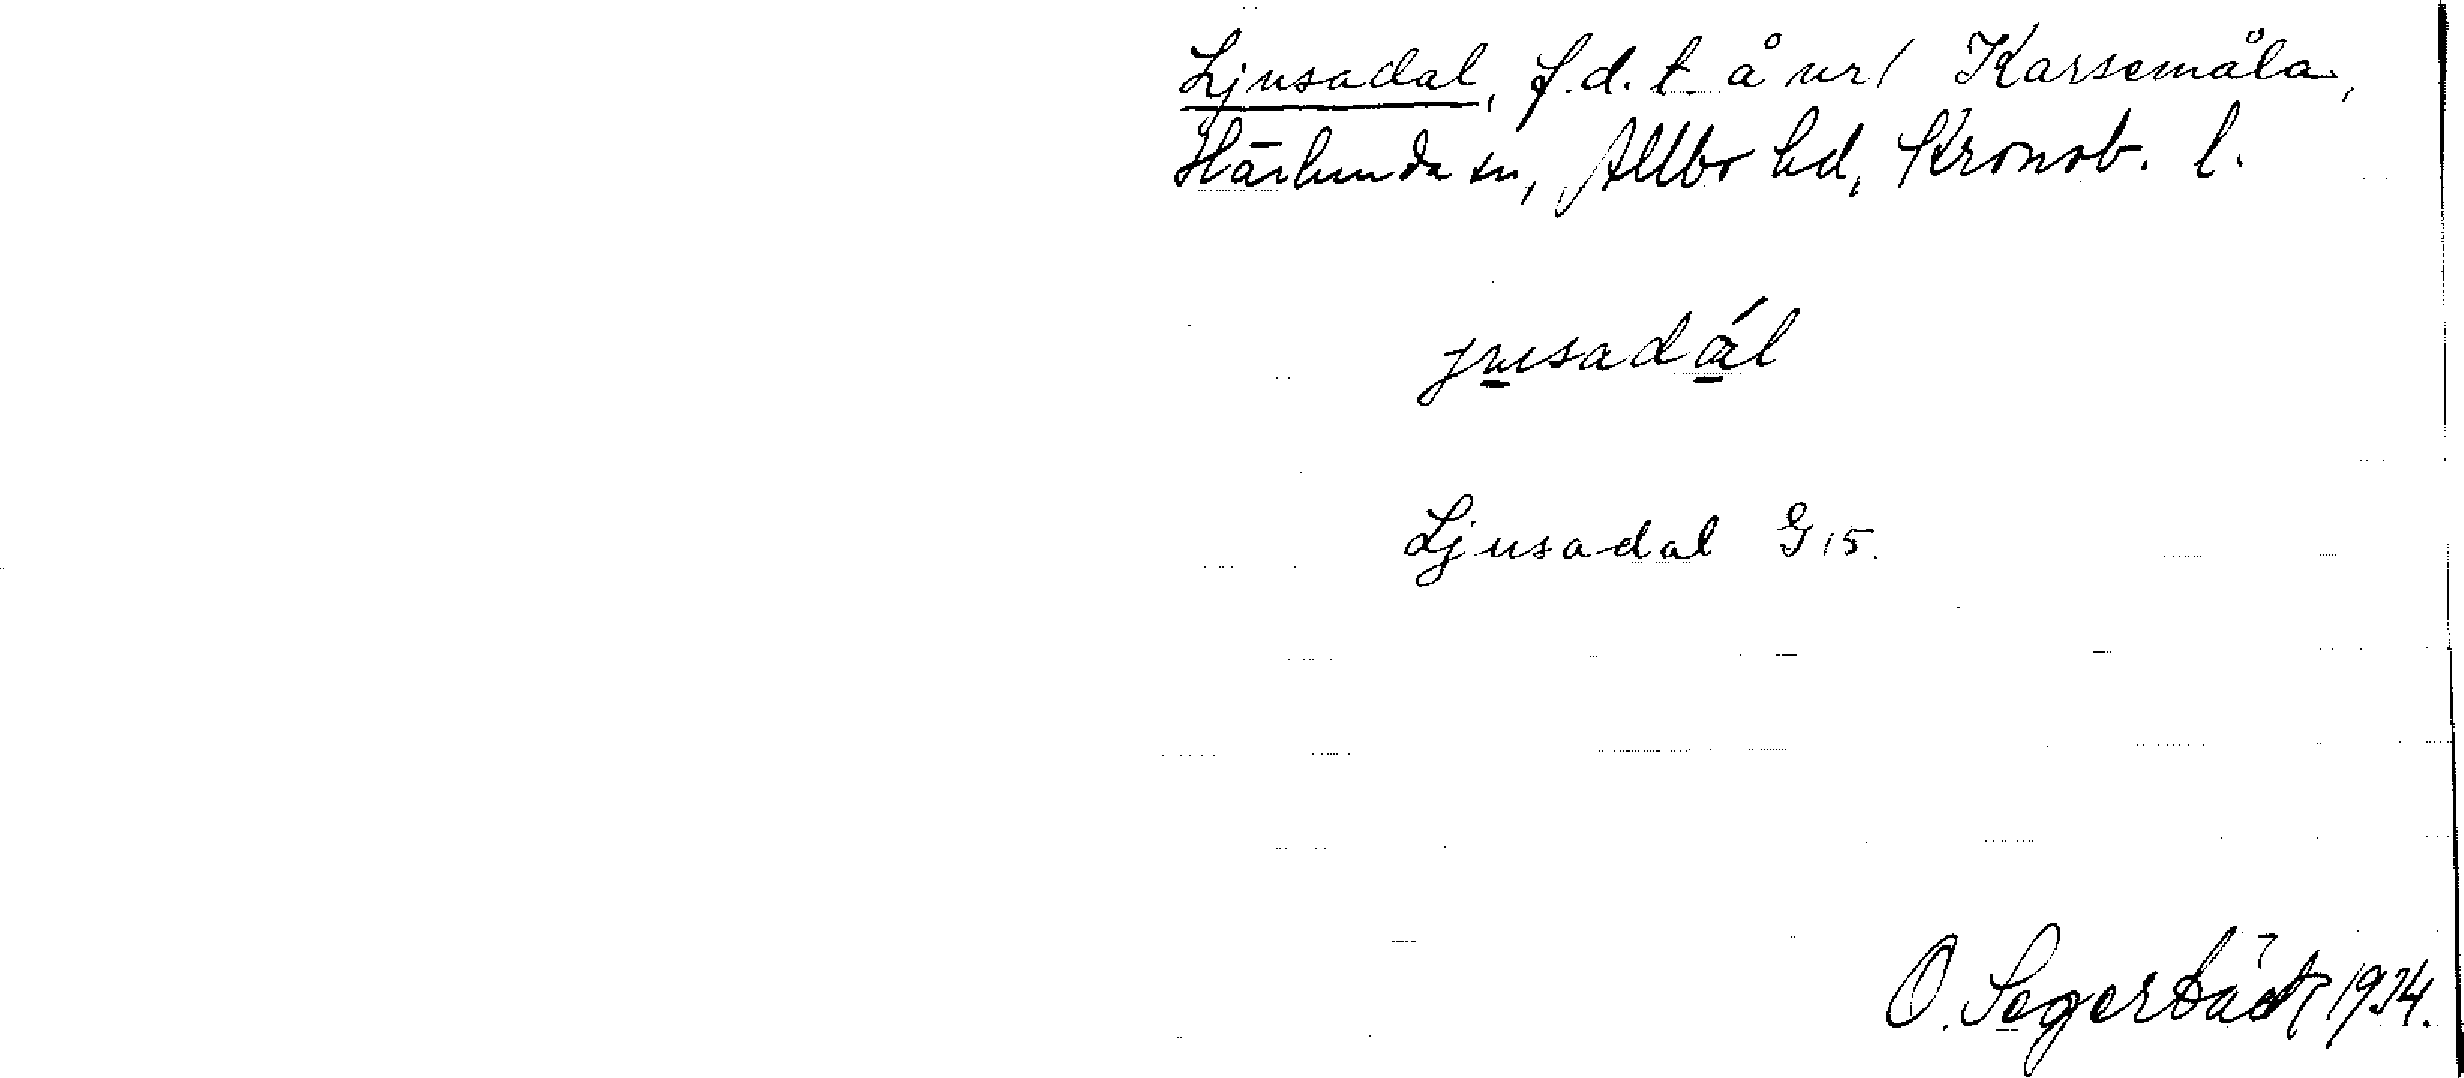 Ljusadal, f.d.t. å nr 1 Karsemåla,
Härlunda sn, Allbo hd, Kronob. l.
jusadál
Ljusadal G 15.
O. Segerbäck 1934.